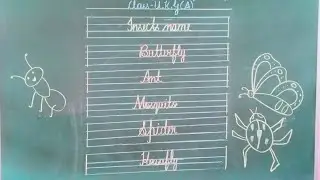 Class-U.K.G(A)
Insects name
Butterfly
Ant
Mosquito
Spider
Housefly